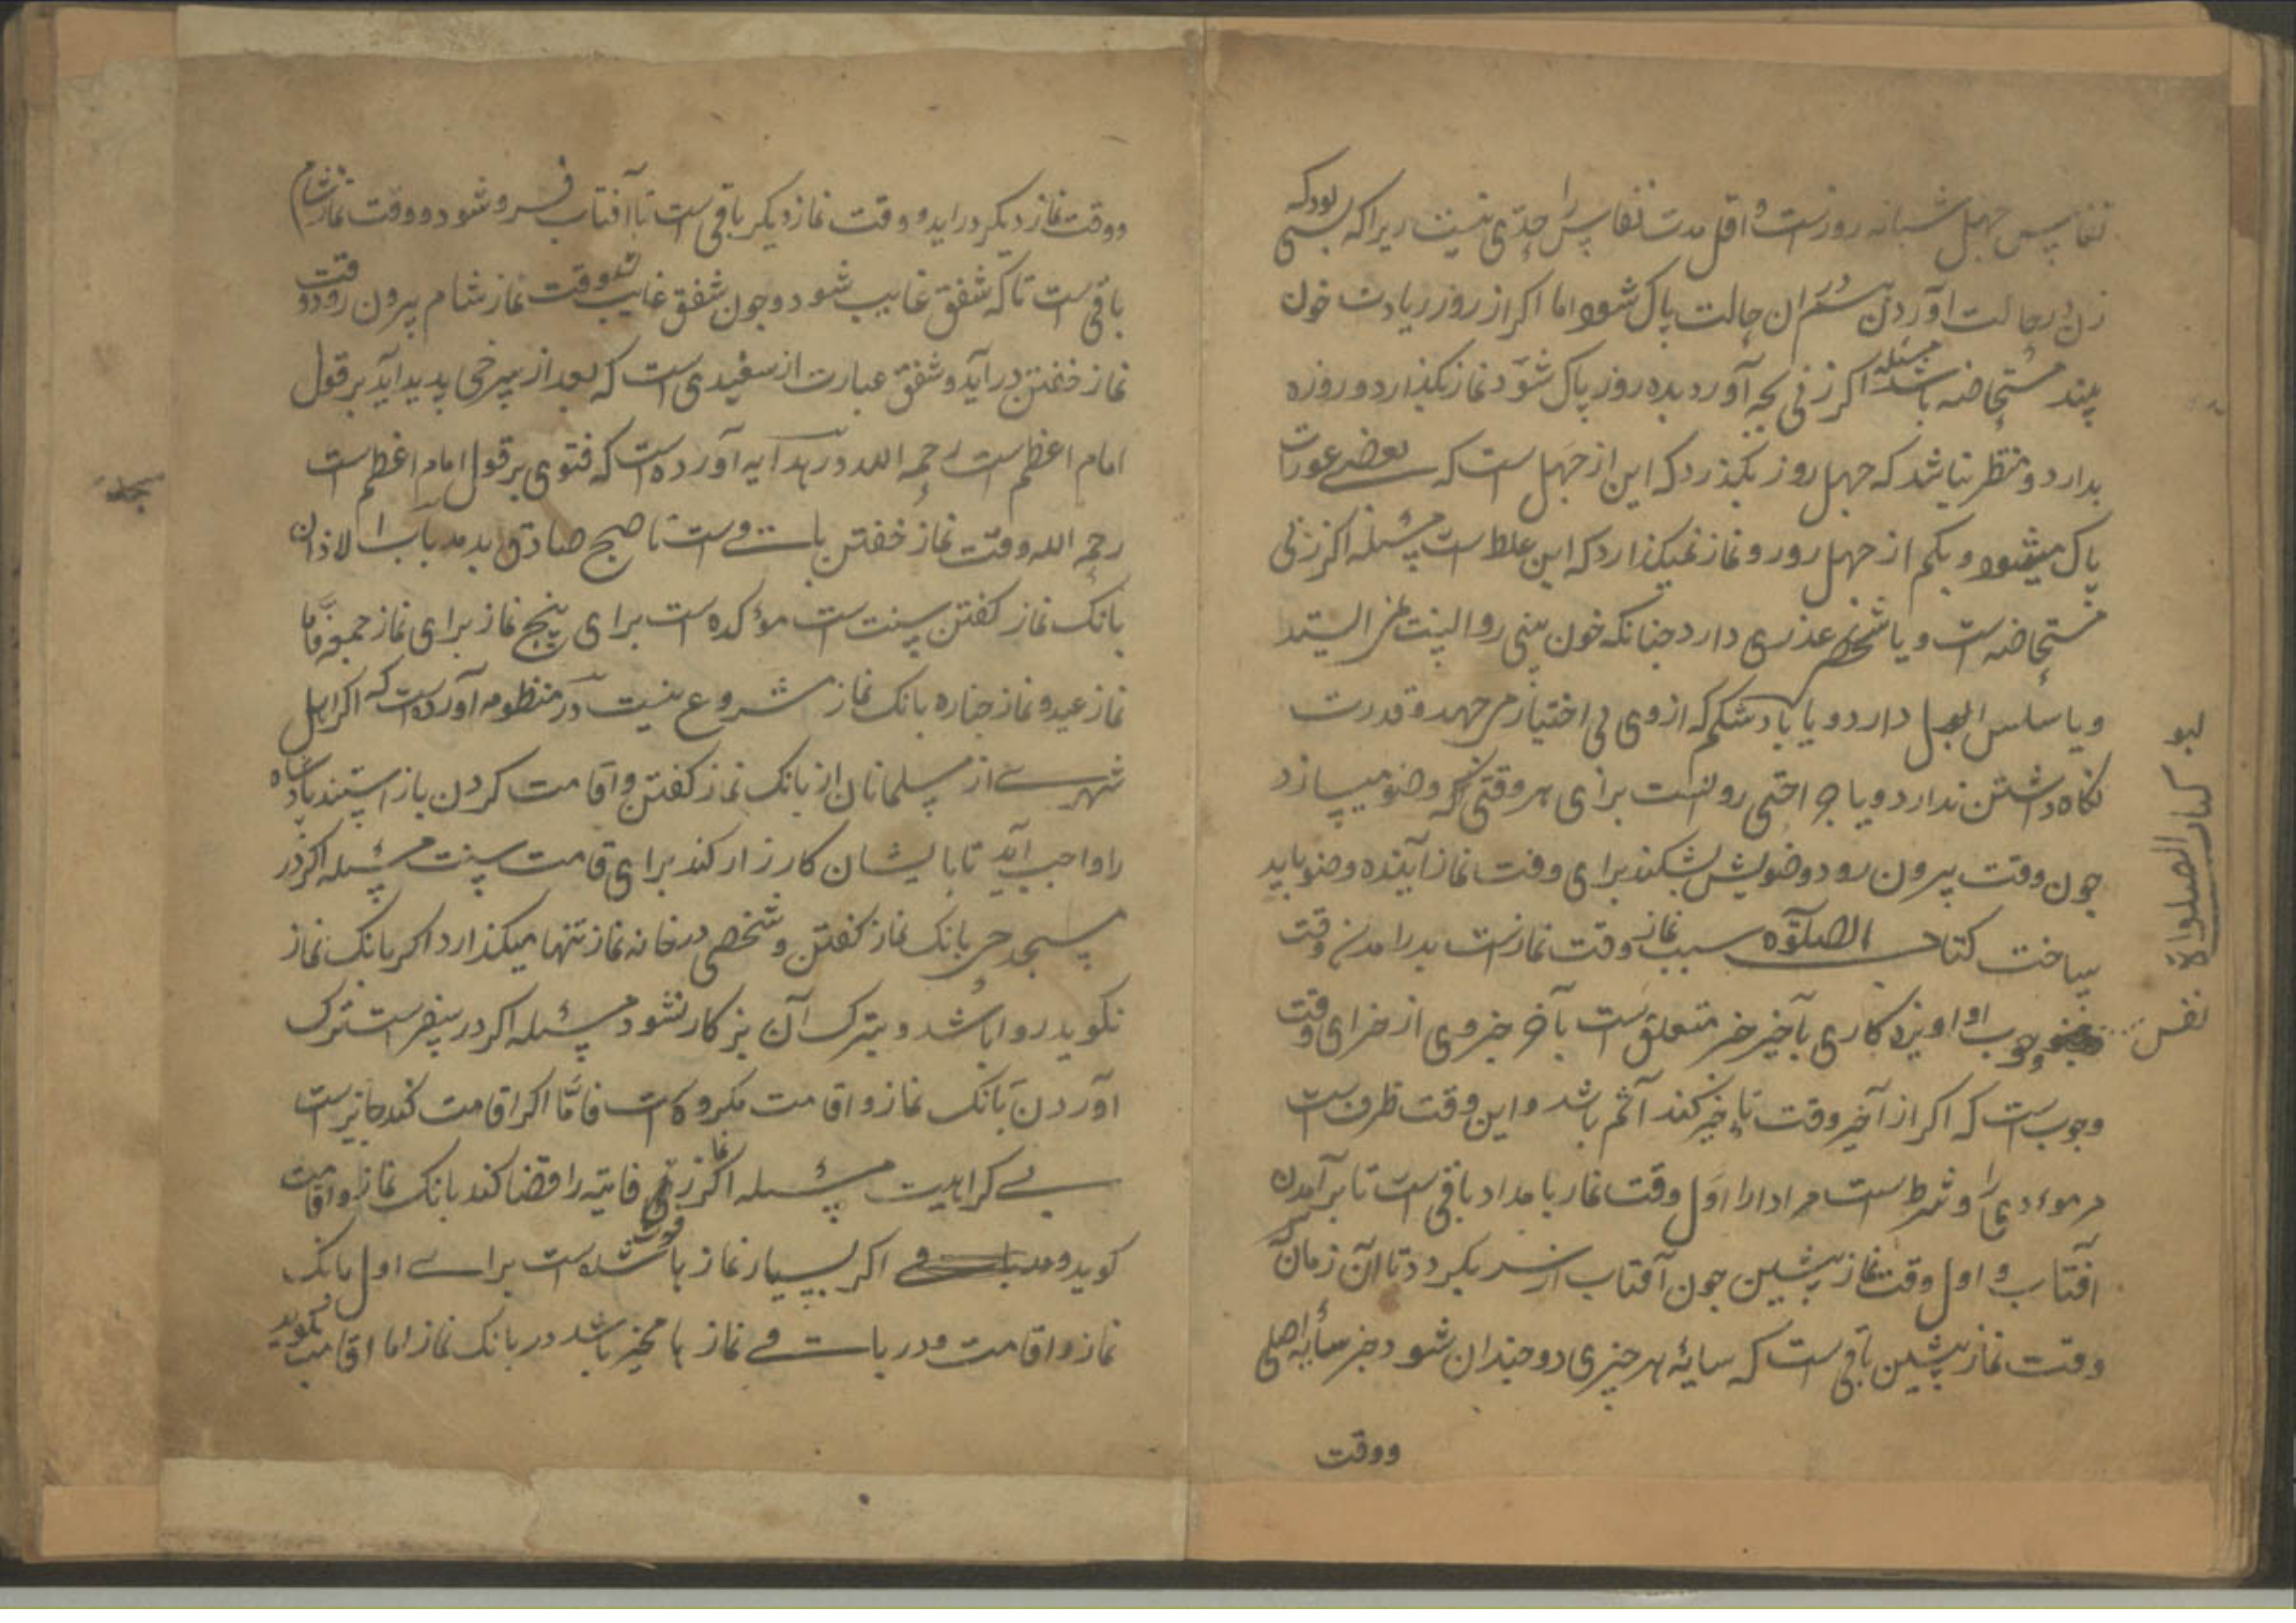 نفاس جهل شبانه روزست و اقل مدت نفاس را حدّی نیست زیراکه بسی بودکه
زن در حالت آوردن هم در ان حالت پاک شود اما اکر از روز زیادت خون
بیند مستحاضه باشد مسئله اکر زنی بچه آورد بده روز پاک شود نماز بکذارد و روزه
بدارد و منتظر نباشد که جهل روز بکذرد که این از جهل است که بعضے عورات
پاک میشود و بکم از جهل روز و نماز نمیکذارد که این غلط است مسئله اکر زنی
مستحاضه است و یا شخصی عذری دارد جنانکه خون بینی روا
و یا سلس البول دارد و یا باد شکم که از وی بی اختیار مر جهد و قدرت
نکاه داشتن ندارد و یا جراحتی روانست برای هر وقتی که وضو میسازد
جون وقت بیرون رود وضویش بشکند برای وقت نماز آینده وضو باید
ساخت کتاب الصلوٰة سبب نماز وقت نمازست بدرامدن وقت
وجوب او
وجوب است که اکر از آخر وقت تاخیر کند آثم باشد و این وقت ظرف است
مر مودی را و شرط است مر ادا را اول وقت نماز بامداد باقی است تا برآمدن
افتاب و اول وقت نماز پیشین جون آفتاب از سر بکردد تا آن زمان
وقت نماز پیشین باقی است که سایهٔ هر جیزی دو جندان شود جز سایهٔ اصلی
ووقت
کتاب الصلواة
نفس
ووقت نماز دیکر دراید و وقت نماز دیکر باقی است تا آفتاب فرو شود و وقت نماز شام
باقی است تاکه شفق غایب شود و جون شفق غایب شد وقت نماز شام بیرون رود و وقت
نماز خفتن درآید و شفق عبارت از سفیدی است که بعد از سرخی پدید آید بر قول
امام اعظم است رحمه الله در هدایه آورده است که فتوی بر قول امام اعظم است
رحمه الله وقت نماز خفتن باقے است تا صبح صادق بدمد باب الاذان
بانک نماز کفتن سنت است مؤکده است برای پنج نماز برای نماز جمعه فامّا
نماز عید و نماز جنازه بانک نماز مشروع نیست در منظومه آورده است که اکر اهل
شهرے از مسلمانان از بانک نماز کفتن و اقامت کردن باز استند پادشاه
را واجب آید تا با ایشان کارزار کند برای قامت سنت مسئله اکر در
مسجد حی بانک نماز کفتن و شخصی در خانه نماز تنها میکذارد اکر بانک نماز
نکوید روا باشد و بترک آن بزکار نشود مسئله اکر در سفر است ترک
آوردن بانک نماز و اقامت مکروه است فامّا اکر اقامت کند جایز است
بے کراهیت مسئله اکر نماز فایته را قضا کند بانک نماز و اقامت
کوید و اکر بسیار نماز ها فوت شده است براے اول بانک
نماز و اقامت و در باقے نماز ها مخیر باشد در بانک نماز اما اقامت بکوید